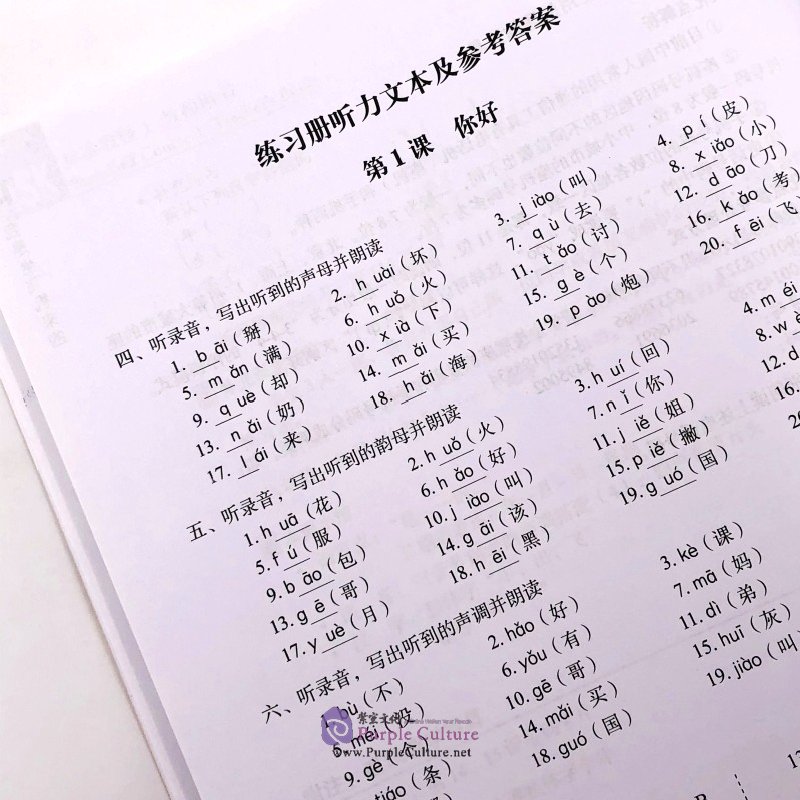 练习册听力文本及参考答案
第1课 你好
四、听录音，写出听到的声母并朗读
1. b āi（掰） 2. h uài（坏） 3. j iào（叫） 4. p í（皮）
5. m ǎn（满） 6. h uǒ（火） 7. q ù（去） 8. x iǎo（小）
9. q uè（却） 10. x ià（下） 11. t ǎo（讨） 12. d āo（刀）
13. n ǎi（奶） 14. m ǎi（买） 15. g è（个） 16. k ǎo（考）
17. l ái（来） 18. h ǎi（海） 19. p ào（炮） 20. f ēi（飞
五、听录音，写出听到的韵母并朗读
1. h uā（花） 2. h uǒ（火） 3. h uí（回） 4. m éi
5. f ú（服） 6. h ǎo（好） 7. n ǐ（你） 8. w
9. b āo（包） 10. j iào（叫） 11. j iě（姐） 12. d
13. g ē（哥） 14. g āi（该） 15. p iě（撇） 16.
17. y uè（月） 18. h ēi（黑） 19. g uó（国）
六、听录音，写出听到的声调并朗读
bù（不） 2. hǎo（好） 3. kè（课）
6. yǒu（有） 7. mā（妈）
9. gè（个） 10. gē（哥） 11. dì（弟）
tiáo（条） 14. mǎi（买） 15. huī（灰）
18. guó（国） 19. jiào（叫
紫云文化
Purple Culture
www.PurpleCulture.net